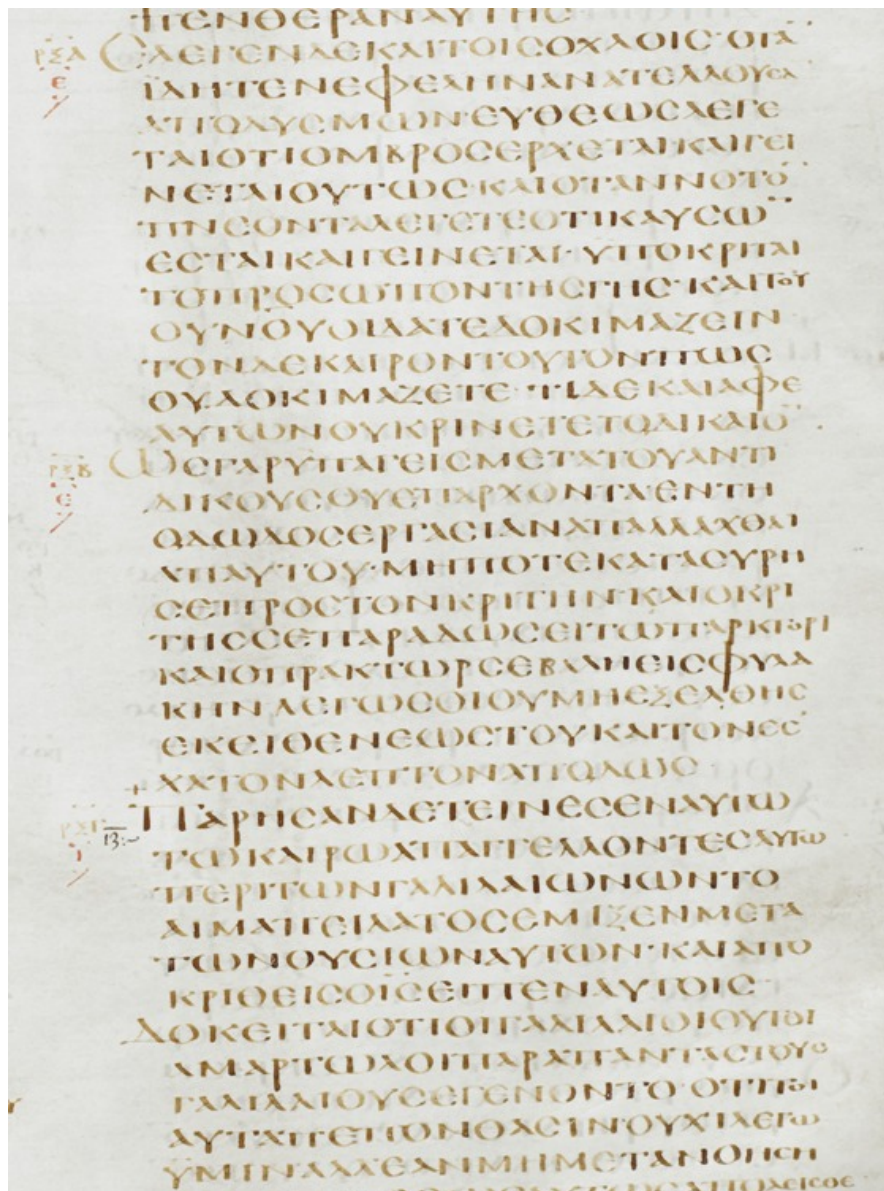 ΠΕΝΘΕΡΑΝΑΥΤΗС
ΡΞΑ ΕΛΕΓΕΝΔΕΚΑΙΤΟΙСΟΧΛΟΙС·ΟΤΑ̅
Ε ΪΔΗΤΕΝΕΦΕΛΗΝΑΝΑΤΕΛΛΟΥСΑ
ΑΠΟΔΥСΜΩΝ·ΕΥΘΕΩСΛΕΓΕ
ΤΑΙΟΤΙΟΜΒΡΟСΕΡΧΕΤΑΙ·ΚΑΙΓΕΙ
ΝΕΤΑΙΟΥΤΩС·ΚΑΙΟΤΑΝΝΟΤΟ
ΠΝΕΟΝΤΑΛΕΓΕΤΕΟΤΙΚΑΥСΩ̅
ΕСΤΑΙΚΑΙΓΕΙΝΕΤΑΙ·ΥΠΟΚΡΙΤΑΙ
ΤΟΠΡΟСΩΠΟΝΤΗСΓΗС·ΚΑΙΤΟΥ
ΟΥΝΟΥΟΙΔΑΤΕΔΟΚΙΜΑΖΕΙΝ
ΤΟΝΔΕΚΑΙΡΟΝΤΟΥΤΟΝΠΩС
ΟΥΔΟΚΙΜΑΖΕΤΕ·ΤΙΔΕΚΑΙΑΦΕ
ΑΥΤΩΝΟΥΚΡΙΝΕΤΕΤΟΔΙΚΑΙΟ̅·
ΡΞΒ ΩСΓΑΡΥΠΑΓΕΙСΜΕΤΑΤΟΥΑΝΤΙ
Ε ΔΙΚΟΥСΟΥΕΠΑΡΧΟΝΤΑΕΝΤΗ
ΟΔΩΔΟСΕΡΓΑСΙΑΝΑΠΑΛΛΑΧΘΑΙ
ΑΠΑΥΤΟΥ·ΜΗΠΟΤΕΚΑΤΑСΥΡΗ
СΕΠΡΟСΤΟΝΚΡΙΤΗΝ·ΚΑΙΟΚΡΙ
ΤΗССΕΠΑΡΑΔΩСΕΙΤΩΠΡΑΚΤΟΡΙ
ΚΑΙΟΠΡΑΚΤΩΡСΕΒΑΛΗΕΙСΦΥΛΑ
ΚΗΝΛΕΓΩСΟΙΟΥΜΗΕΞΕΛΘΗС
ΕΚΕΙΘΕΝΕΩСΤΟΥΚΑΙΤΟΝΕС
ΧΑΤΟΝΛΕΠΤΟΝΑΠΟΔΩС·
ΡΞΓ ΠΑΡΗСΑΝΔΕΤΕΙΝΕСΕΝΑΥΤΩ
Ι ΤΩΚΑΙΡΩΑΠΑΓΓΕΛΛΟΝΤΕСΑΥΤΩ
ΠΕΡΙΤΩΝΓΑΛΙΛΑΙΩΝΩΝΤΟ
ΑΙΜΑΠΕΙΛΑΤΟСΕΜΙΞΕΝΜΕΤΑ
ΤΩΝΘΥСΙΩΝΑΥΤΩΝ·ΚΑΙΑΠΟ
ΚΡΙΘΕΙСΟΙ̅С̅ΕΙΠΕΝΑΥΤΟΙС·
ΔΟΚΕΙΤΑΙΟΤΙΟΙΓΑΛΙΛΑΙΟΙΟΥΤΟΙ
ΑΜΑΡΤΩΛΟΙΠΑΡΑΠΑΝΤΑСΤΟΥС
ΓΑΛΙΛΑΙΟΥСΕΓΕΝΟΝΤΟ·ΟΤΙ
ΑΥΤΑΠΕΠΟΝΘΑСΙΝΟΥΧΙΛΕΓΩ
ΥΜΙΝΑΛΛΕΑΝΜΗΜΕΤΑΝΟΗСΗ